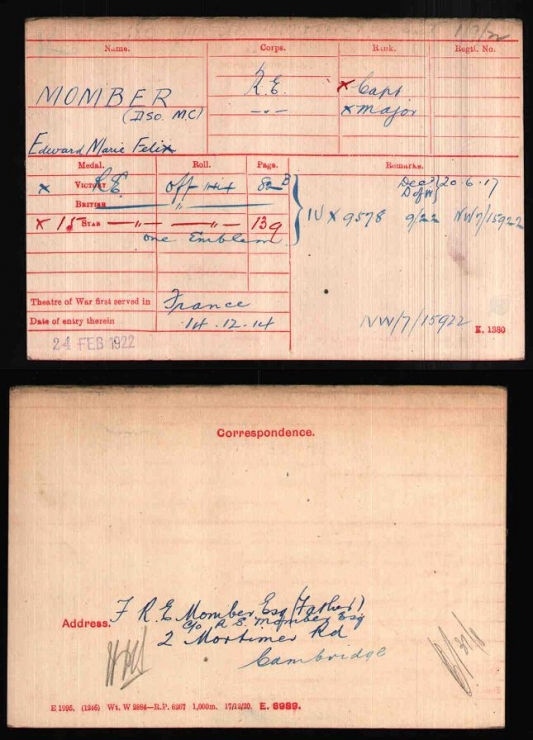 Name. Corps. Rank. Regtl. No.
MOMBER R.E. x Capt
(DSO. MC) -"- x Major
Edward Marie Felix
Medal. Roll. Page. Remarks.
x VICTORY R.E. Off 82B Decd 20.6.17
BRITISH " DofW
x 15 STAR -"- -"- 139 IV x 9578 9/22 NW/7/15922
one Emblem
Theatre of War first served in France
Date of entry therein 14.12.14 NW/7/15922
24 FEB 1922 K. 1380
Correspondence.
F R.E Momber Esq (Father)
c/o A. S. Momber Esq
Address. 2 Mortimer Rd
Cambridge
E 1995. (1246) Wt. W 2884—R.P. 6207 1,000m. 17/12/20. E. 6989.